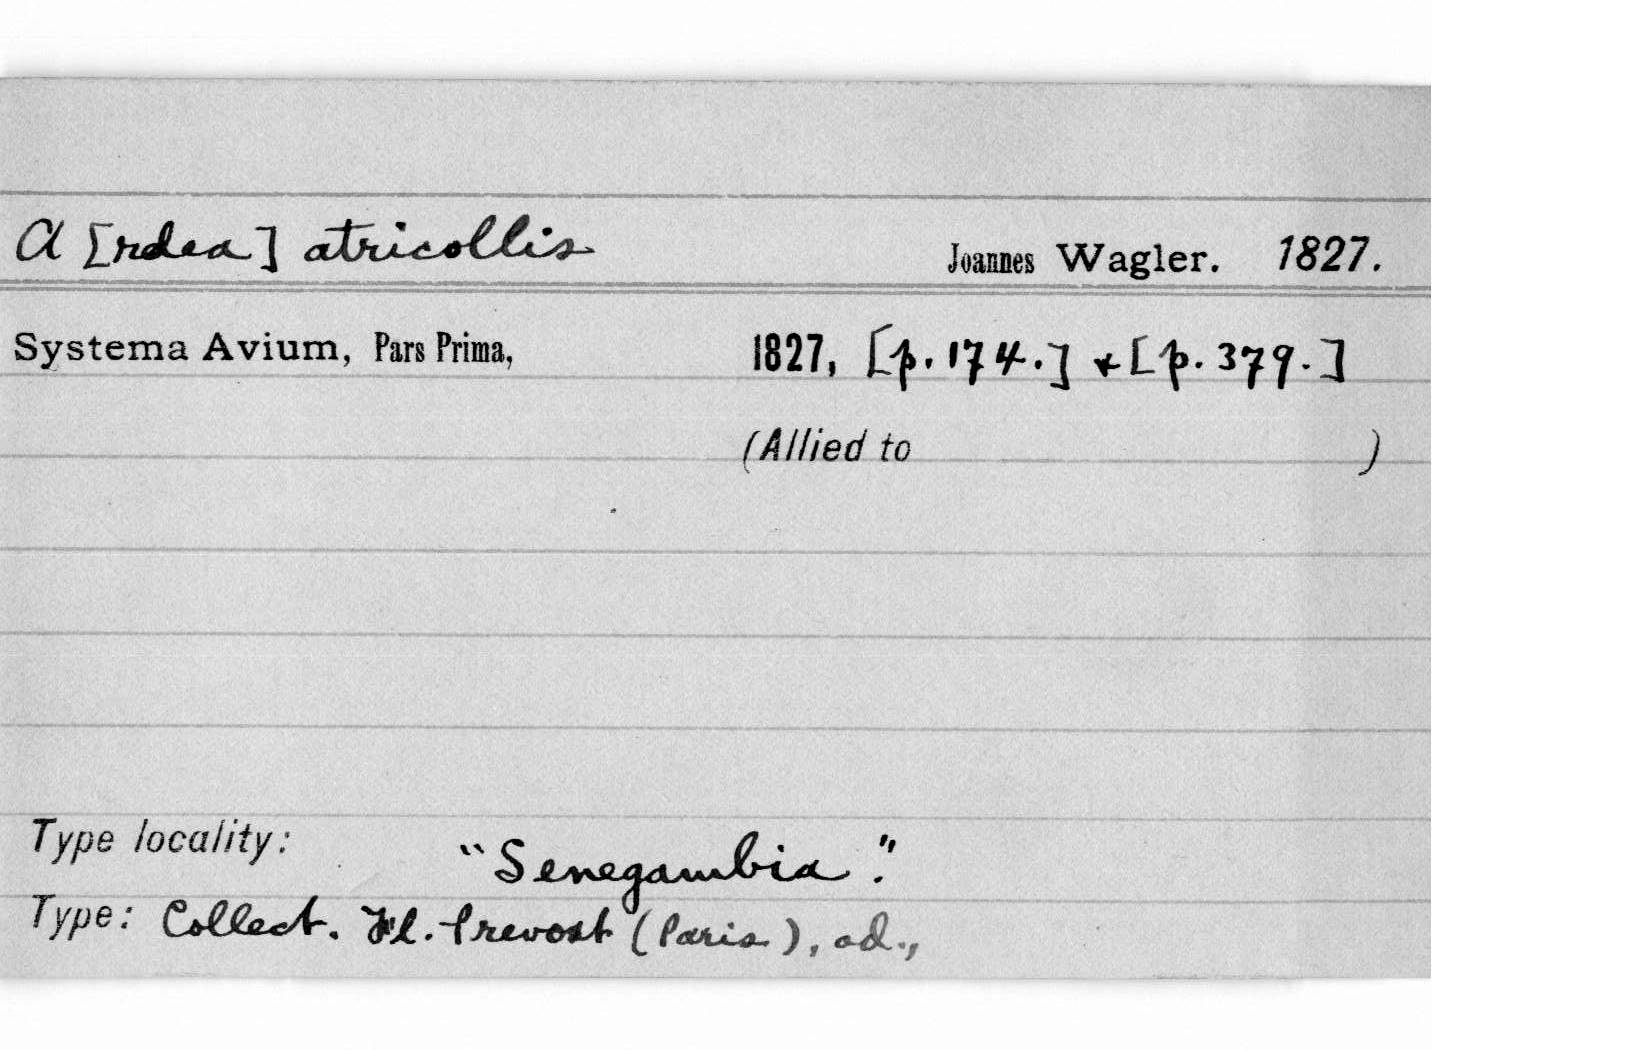 A [rdea] atricollis Joannes Wagler. 1827.
Systema Avium, Pars Prima, 1827, [p. 174.] + [p. 379.]
(Allied to )
Type locality: "Senegambia".
Type: Collect. Fl. Prevost (Paris), ad.,